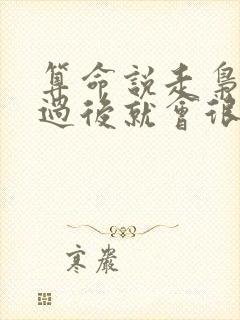 算命說走梟
過後就會很
寒巖